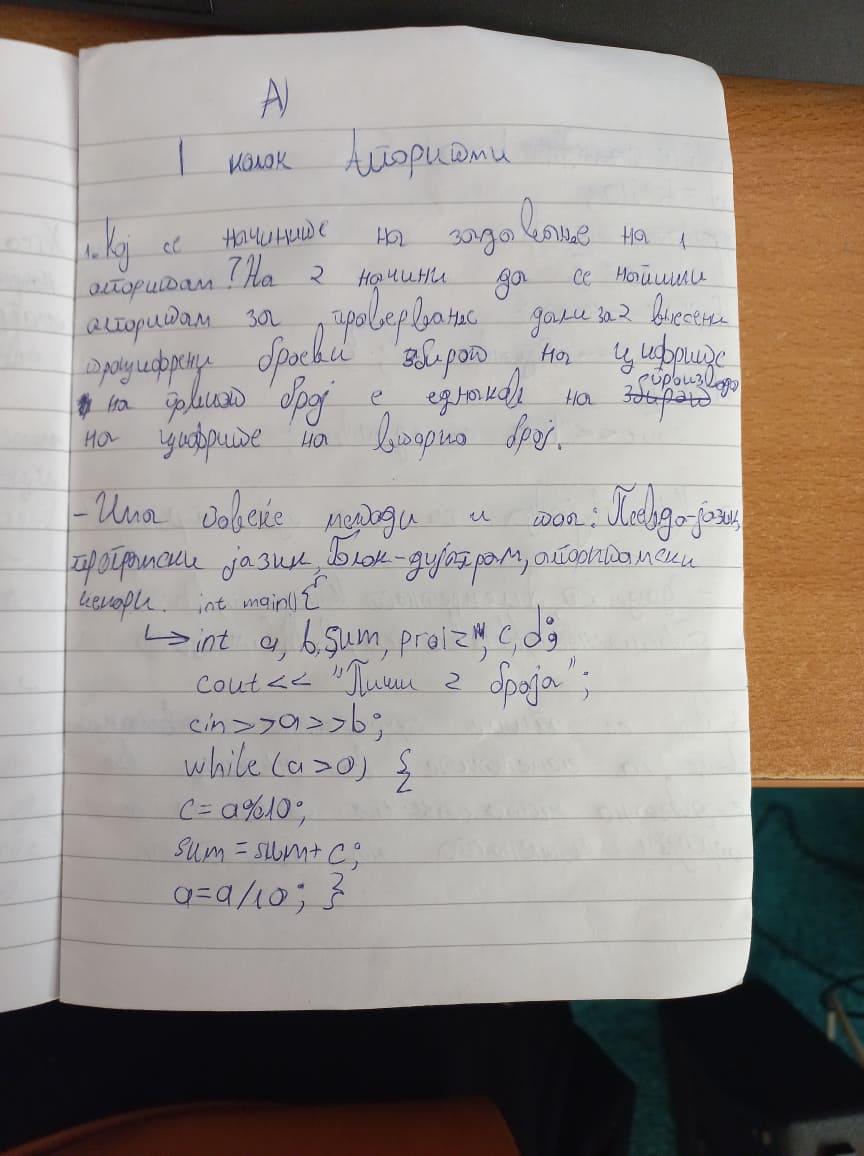 А)
I колок Алгоритми
1. Кој се начините на задавање на 1
алгоритам? На 2 начини да се напиши
алгоритам за проверване дали за 2 внесени
троцифрени броеви збирот на цифрите
на првиот број е еднаков на збирот производо
на цифрите на вторио број.
- Има повеќе методи и тоа: Псевдо-јазик,
програмски јазик, Блок-дијаграм, алгоритамски
чекори. int main() {
↳ int a, b, sum, proizv, c, d;
cout<< "Пиши 2 броја";
cin>>a>>b;
while (a>0) {
c=a%10;
sum=sum+c;
a=a/10; }